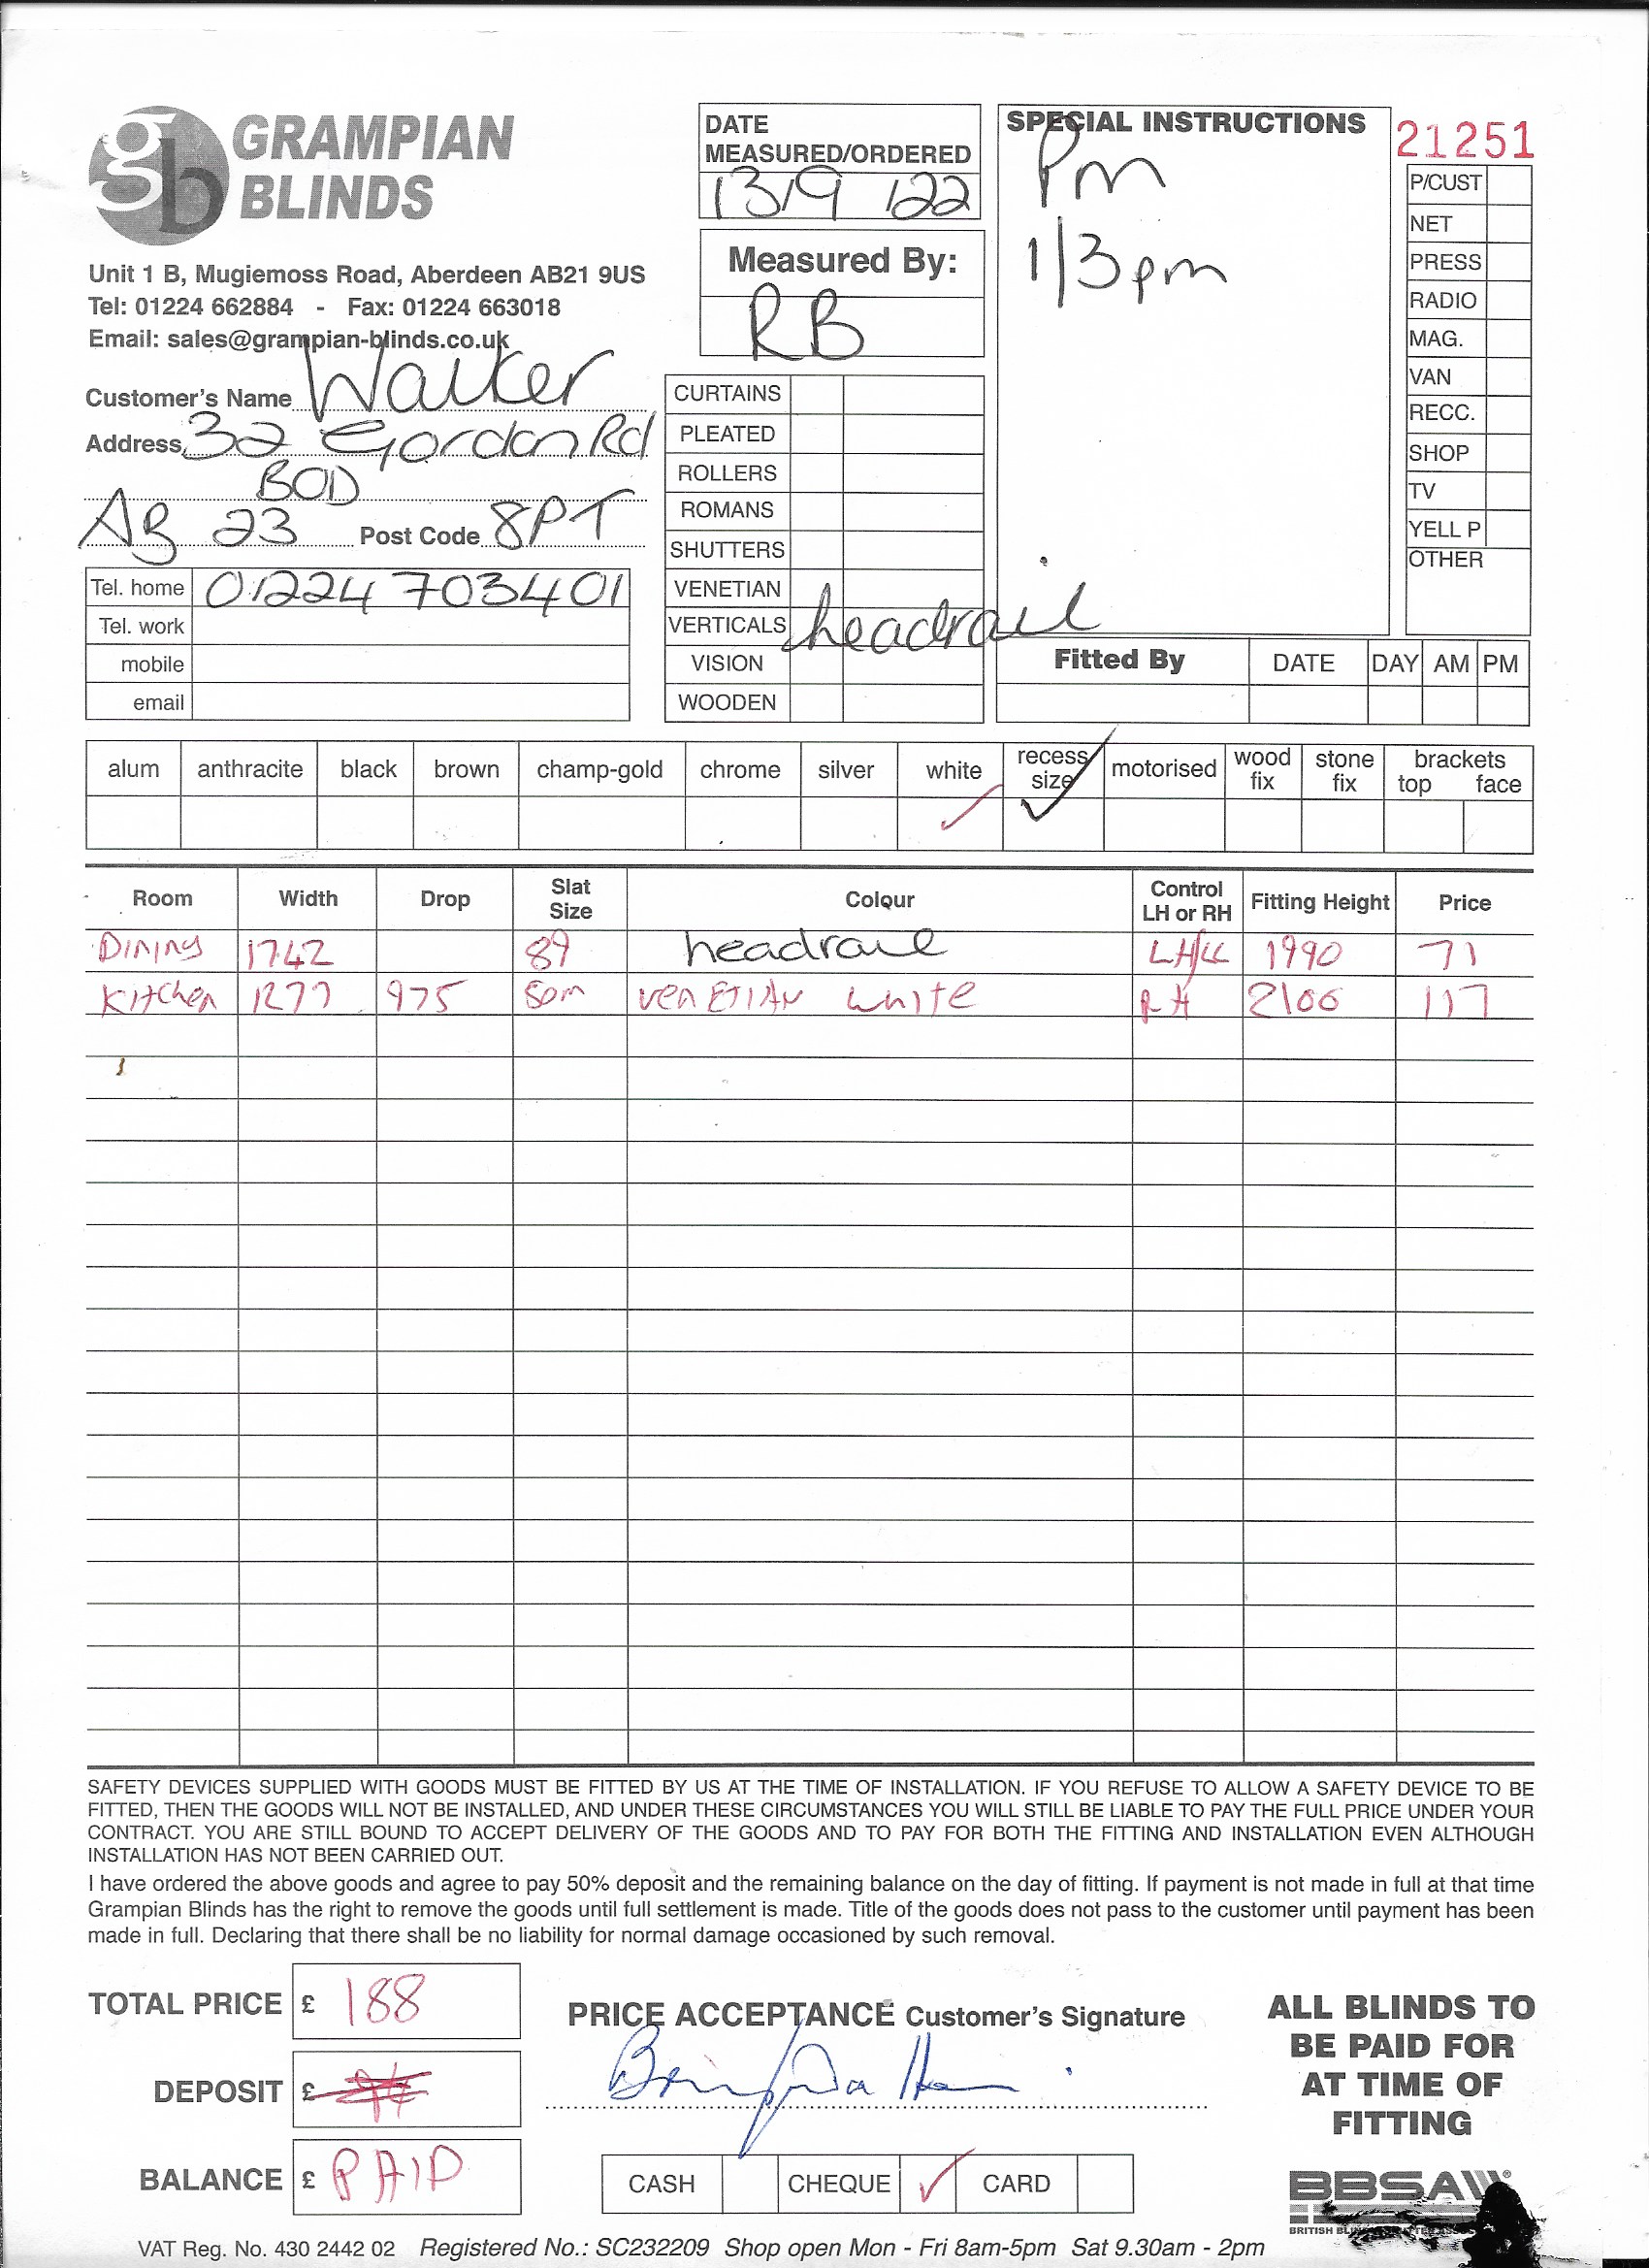 GRAMPIAN
BLINDS
Unit 1 B, Mugiemoss Road, Aberdeen AB21 9US
Tel: 01224 662884 - Fax: 01224 663018
Email: sales@grampian-blinds.co.uk
Customer's Name Walker
Address 32 Gordon Rd
BOD
AB 23 Post Code 8PT
Tel. home 01224 703401
Tel. work
mobile
email
DATE
MEASURED/ORDERED
13/9/22
Measured By:
RB
CURTAINS
PLEATED
ROLLERS
ROMANS
SHUTTERS
VENETIAN
VERTICALS headrail
VISION
WOODEN
SPECIAL INSTRUCTIONS
Pm
1/3pm
21251
P/CUST
NET
PRESS
RADIO
MAG.
VAN
RECC.
SHOP
TV
YELL P
OTHER
Fitted By DATE DAY AM PM
alum anthracite black brown champ-gold chrome silver white recess size motorised wood fix stone fix brackets top face
Room Width Drop Slat Size Colour Control LH or RH Fitting Height Price
Dining 1742 89 headrail 1990 71
Kitchen 1277 975 50m venETIAN white RH 2106 117
SAFETY DEVICES SUPPLIED WITH GOODS MUST BE FITTED BY US AT THE TIME OF INSTALLATION. IF YOU REFUSE TO ALLOW A SAFETY DEVICE TO BE
FITTED, THEN THE GOODS WILL NOT BE INSTALLED, AND UNDER THESE CIRCUMSTANCES YOU WILL STILL BE LIABLE TO PAY THE FULL PRICE UNDER YOUR
CONTRACT. YOU ARE STILL BOUND TO ACCEPT DELIVERY OF THE GOODS AND TO PAY FOR BOTH THE FITTING AND INSTALLATION EVEN ALTHOUGH
INSTALLATION HAS NOT BEEN CARRIED OUT.
I have ordered the above goods and agree to pay 50% deposit and the remaining balance on the day of fitting. If payment is not made in full at that time
Grampian Blinds has the right to remove the goods until full settlement is made. Title of the goods does not pass to the customer until payment has been
made in full. Declaring that there shall be no liability for normal damage occasioned by such removal.
TOTAL PRICE £ 188
DEPOSIT £
BALANCE £ PAID
PRICE ACCEPTANCE Customer's Signature
CASH CHEQUE CARD
ALL BLINDS TO
BE PAID FOR
AT TIME OF
FITTING
BBSA
BRITISH
VAT Reg. No. 430 2442 02 Registered No.: SC232209 Shop open Mon - Fri 8am-5pm Sat 9.30am - 2pm